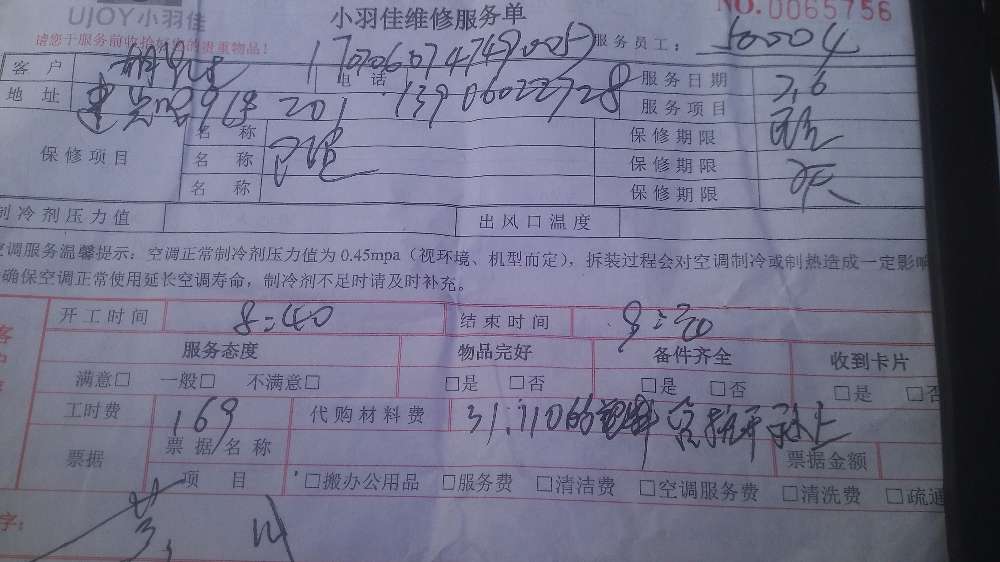 UJOY小羽佳 小羽佳维修服务单 NO.0065756
请您于服务前收拾好您的贵重物品! 服务员工: 50004
客户 电话 170706074749005 服务日期 2,6
地址 918 201 13906022728 服务项目
保修项目 名称 保修期限
名称 保修期限
名称 保修期限
制冷剂压力值 出风口温度
空调服务温馨提示:空调正常制冷剂压力值为0.45mpa(视环境、机型而定),拆装过程会对空调制冷或制热造成一定影响
确保空调正常使用延长空调寿命,制冷剂不足时请及时补充。
开工时间 8:40 结束时间
服务态度 物品完好 备件齐全 收到卡片
满意□ 一般□ 不满意□ □是 □否 □是 □否 □是 □否
工时费 169 代购材料费 31.110的塑料
票据 票据名称 票据金额
项目 □搬办公用品 □服务费 □清洁费 □空调服务费 □清洗费 □疏通
字: